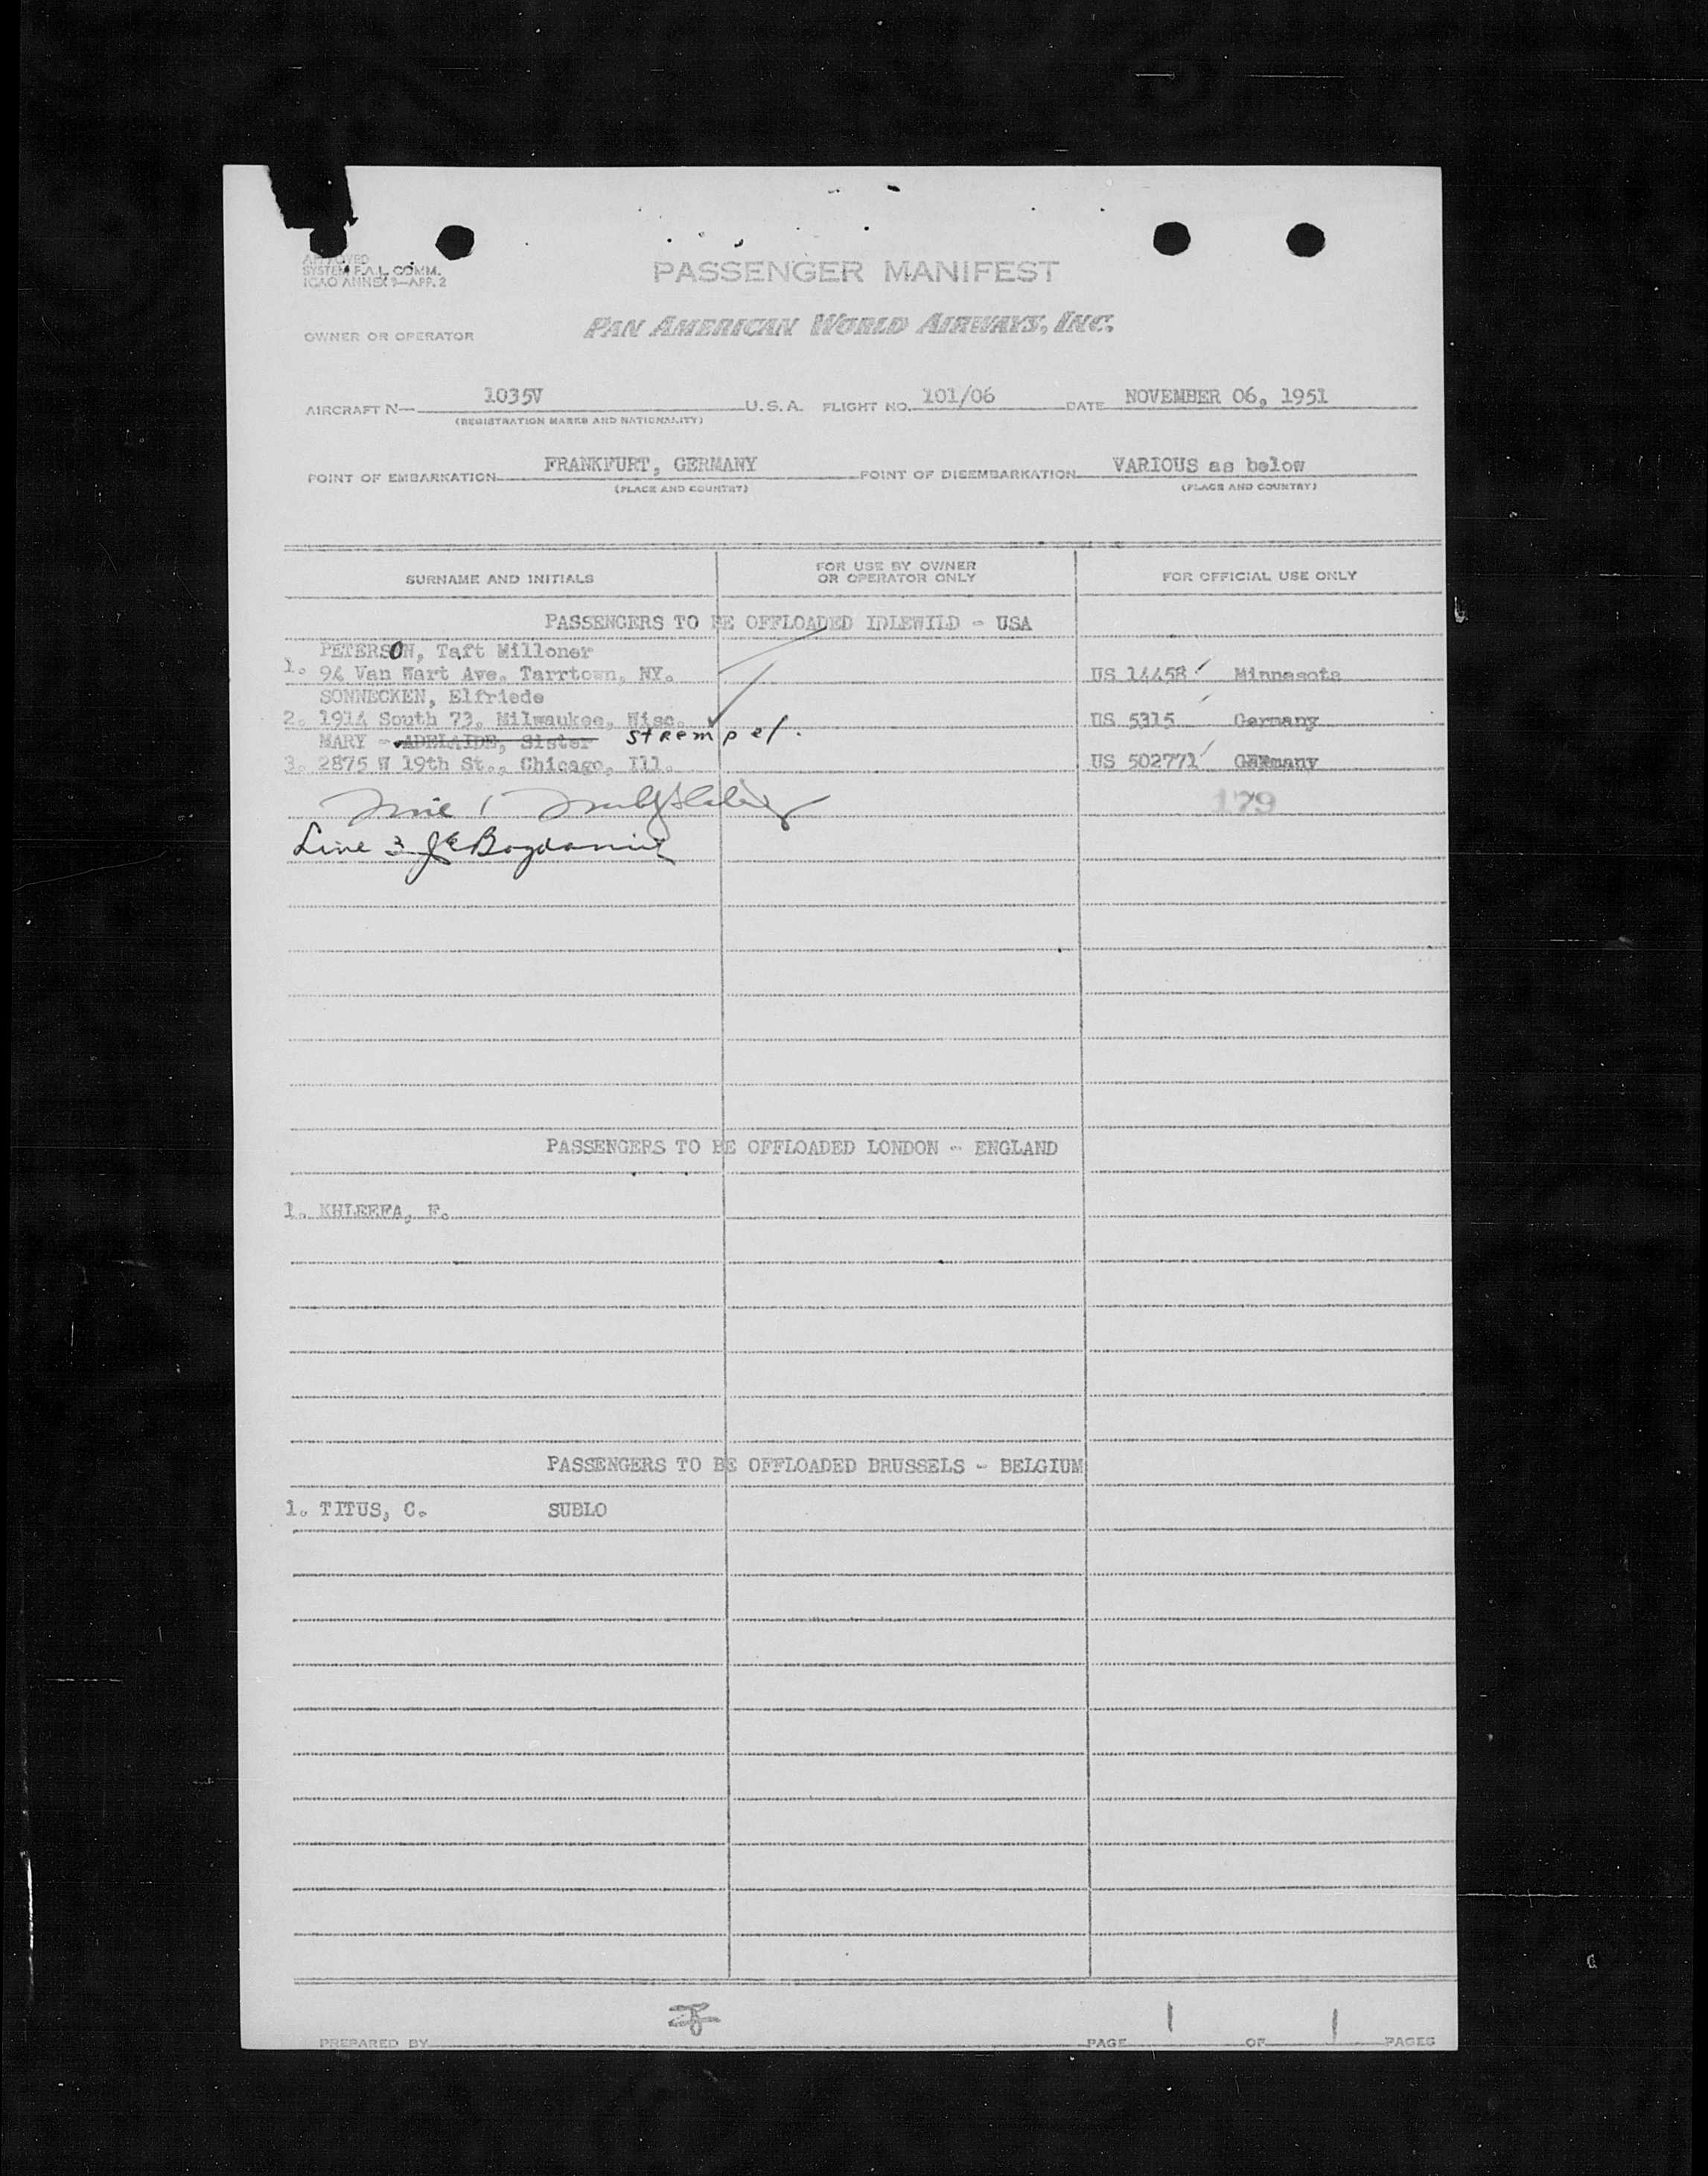 APPROVED
SYSTEM F.A.L. COMM.
ICAO ANNEX 9—APP. 2
PASSENGER MANIFEST
OWNER OR OPERATOR
PAN AMERICAN WORLD AIRWAYS, INC.
AIRCRAFT N— 1035V U.S.A. FLIGHT NO. 101/06 DATE NOVEMBER 06, 1951
(REGISTRATION MARKS AND NATIONALITY)
POINT OF EMBARKATION FRANKFURT, GERMANY POINT OF DISEMBARKATION VARIOUS as below
(PLACE AND COUNTRY) (PLACE AND COUNTRY)
SURNAME AND INITIALS FOR USE BY OWNER OR OPERATOR ONLY FOR OFFICIAL USE ONLY
PASSENGERS TO BE OFFLOADED IDLEWILD - USA
PETERSON, Taft Milloner
1. 94 Van Wart Ave. Tarrtown, NY. US 14458 Minnesota
SONNECKEN, Elfriede
2. 1914 South 73. Milwaukee, Wisc. US 5315 Germany
MARY - ADELAIDE, Sister strempel.
3. 2875 W 19th St., Chicago, Ill. US 502771 GERmany
Line 1 179
Line 3 JE
PASSENGERS TO BE OFFLOADED LONDON - ENGLAND
1. KHLEEFA, F.
PASSENGERS TO BE OFFLOADED BRUSSELS - BELGIUM
1. TITUS, C. SUBLO
PREPARED BY PAGE 1 OF 1 PAGES